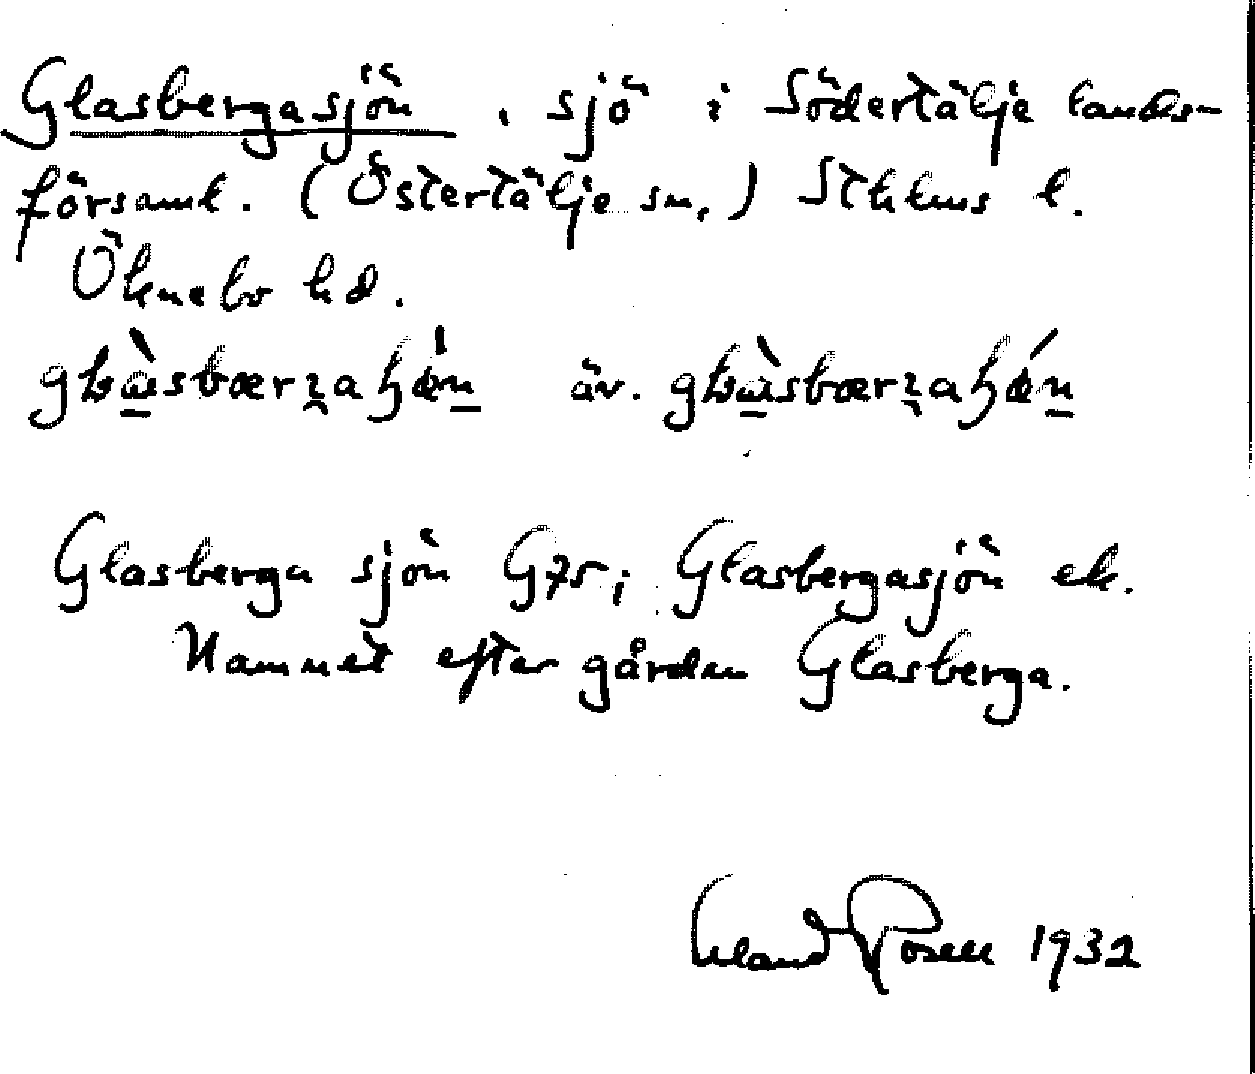 Glasbergasjön, sjö i Södertälje lands-
församl. (Östertälje sn,) Sthlms l.
Öknebo hd.
äv.
Glasberga sjön G75; Glasbergasjön ek.
Namnet efter gården Glasberga.
Rosell 1932